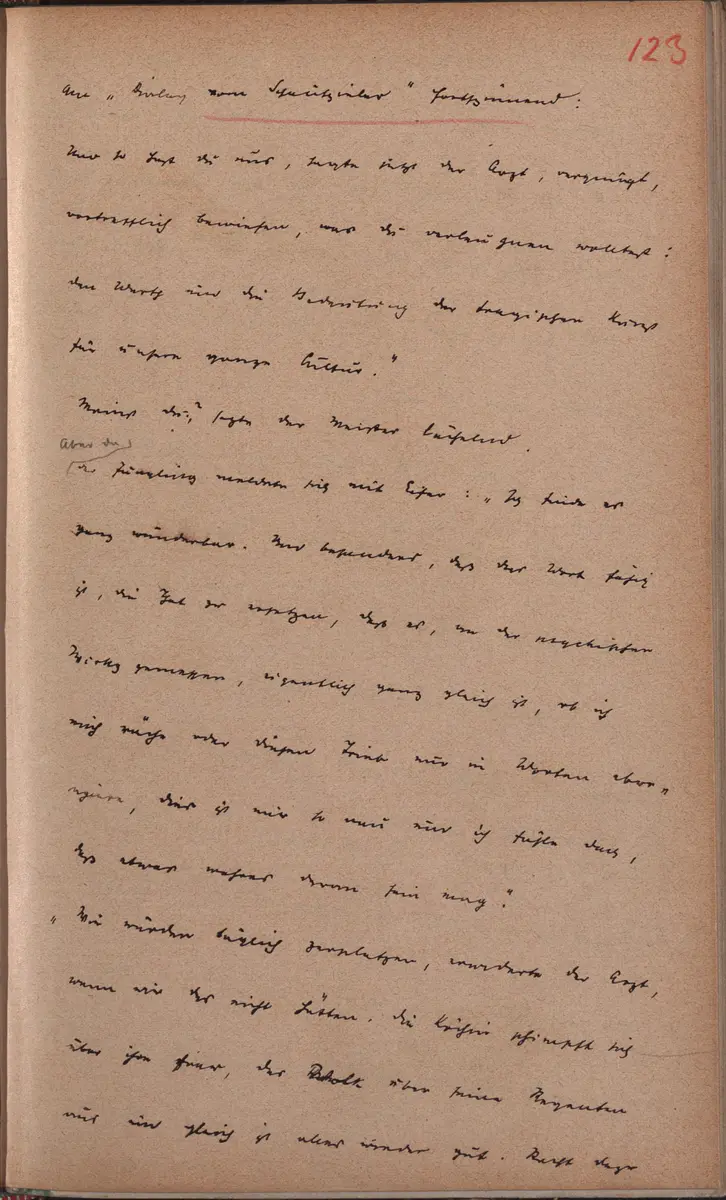 123
Aus „Dialog vom Schauspieler“ fortspinnend:
Nun so hast du uns, sagte jetzt der Arzt, vergnügt,
vortrefflich bewiesen, was du verleugnen wolltest:
den Werth und die Bedeutung der tragischen Kunst
für unsere ganze Cultur.“
Meinst du?, sagte der Meister lächelnd.
Aber der
der Jüngling meldete sich mit Eifer: „Ich finde es
ganz wunderbar. Und besonders, daß das Wort fähig
ist, die Tat zu ersetzen, daß es, an der psychischen
Wirkg gemessen, eigentlich ganz gleich ist, ob ich
mich räche oder diesen Trieb nur in Worten abrea-
giere, dies ist mir so neu und ich fühle doch,
daß etwas wahres daran sein mag.“
„Wir würden täglich zerplatzen, erwiderte der Arzt,
wenn wir das nicht hätten. Die Köchin schimpft sich
über ihre Frau, das Volk über seine Regenten
aus und gleich ist alles wieder gut. Recht dazu